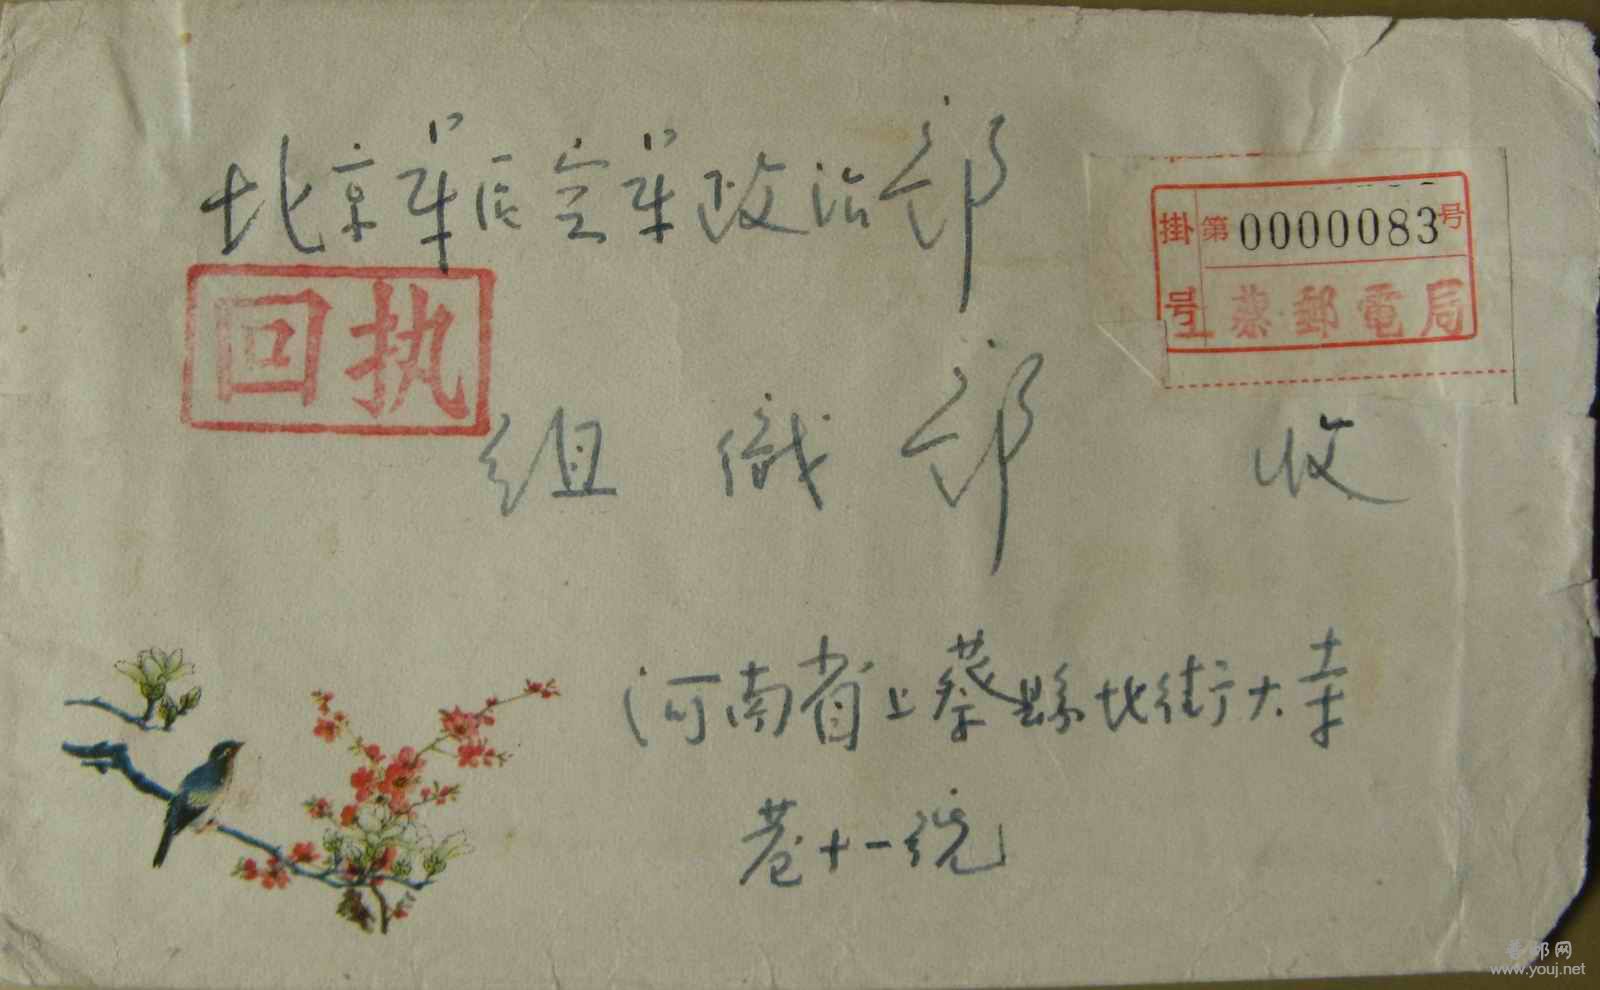 北京军区空军政治部
掛号 第0000083号
上蔡郵電局
回执
组织部 收
河南省上蔡縣北街大寺
巷十一号
www.youj.net